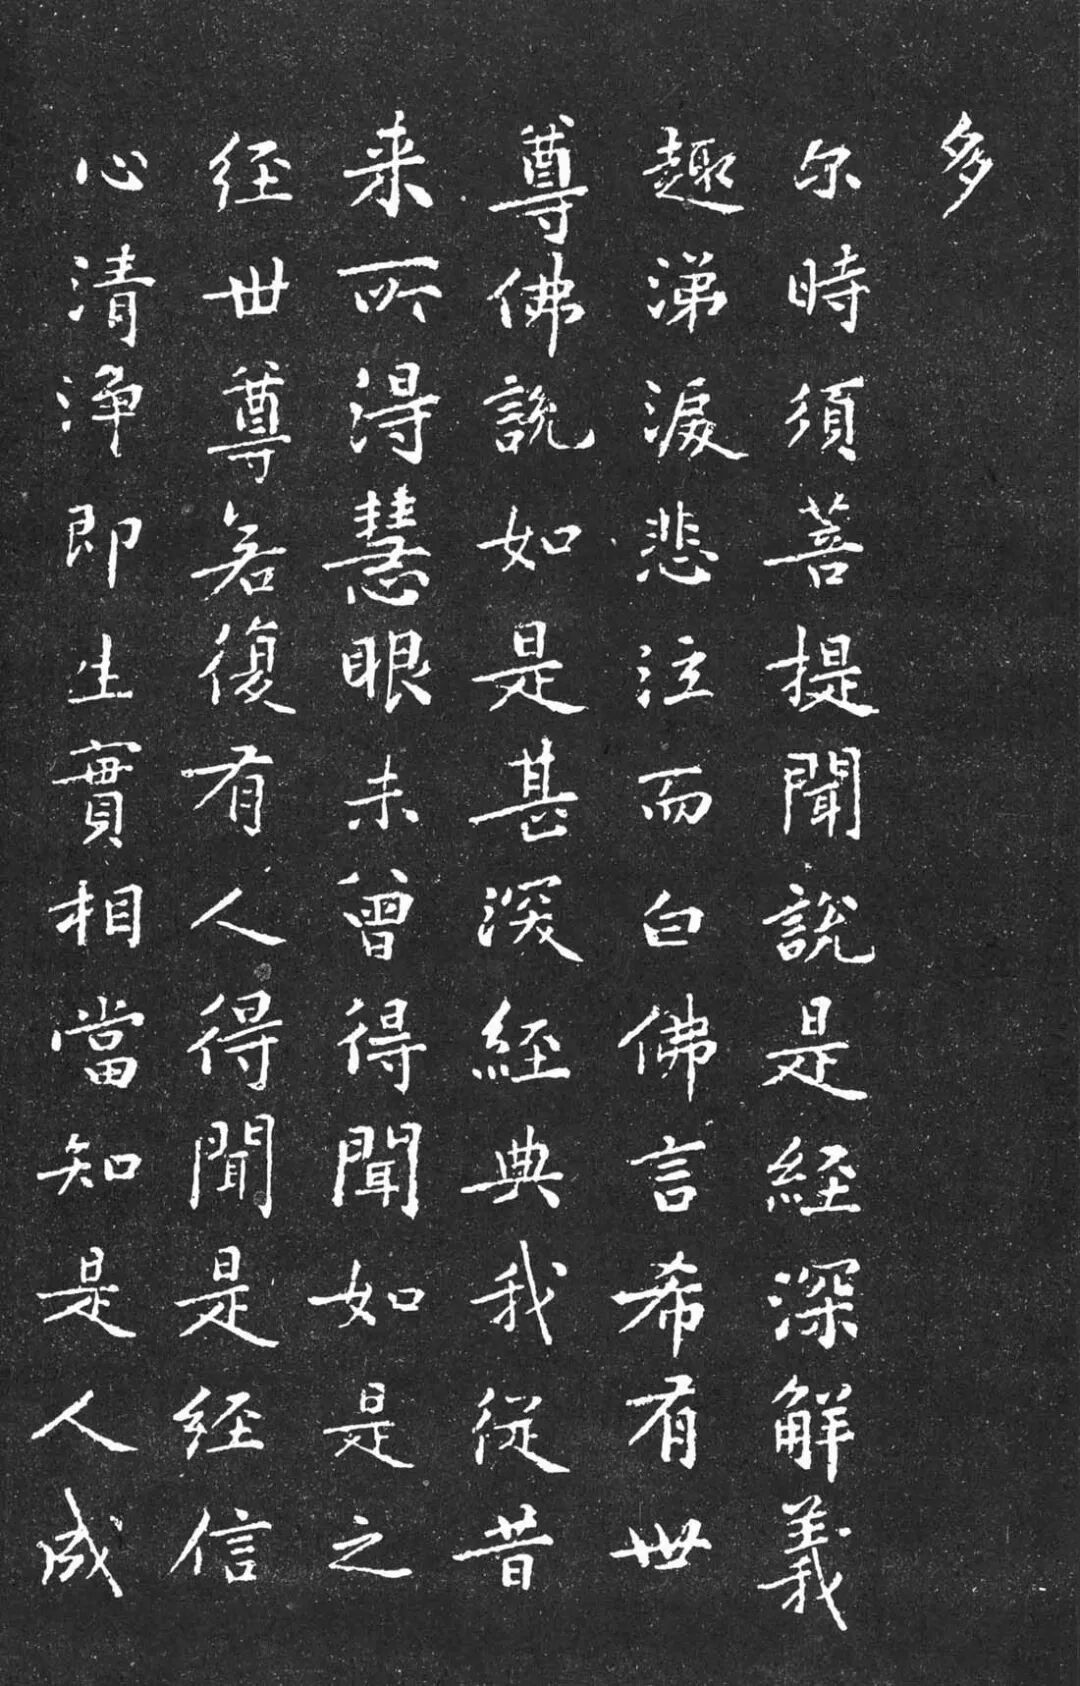 多
尔時須菩提聞說是經深解義
趣涕淚悲泣而白佛言希有世
尊佛說如是甚深經典我從昔
来所得慧眼未曾得聞如是之
經世尊若復有人得聞是經信
心清淨即生實相當知是人成